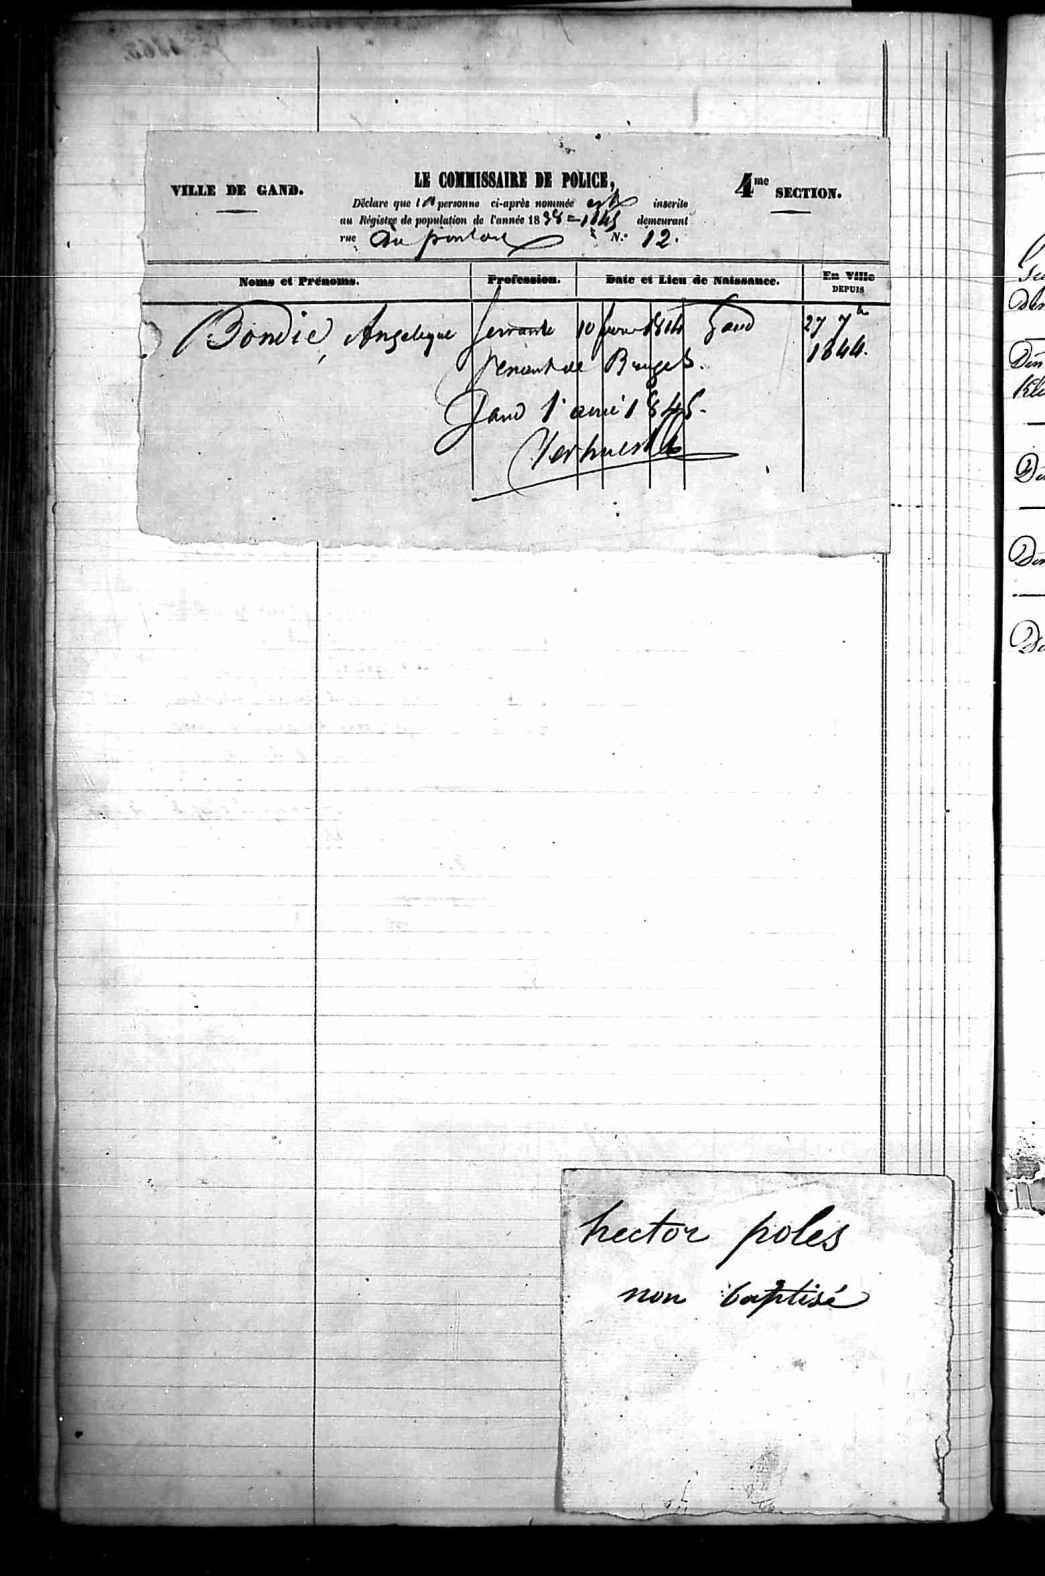 VILLE DE GAND.
LE COMMISSAIRE DE POLICE,
4me SECTION.
Déclare que la personne ci-après nommée est inscrite
au Régistre de population de l'année 1838=1845 demeurant
rue du N.° 12.
Noms et Prénoms. Profession. Date et Lieu de Naissance. En Ville DEPUIS
Bondie, Angelique servante 10 1814 Gand 27 7h
venant de Bruges. 1844.
Gand 1 1845.
hector poles
non baptisé